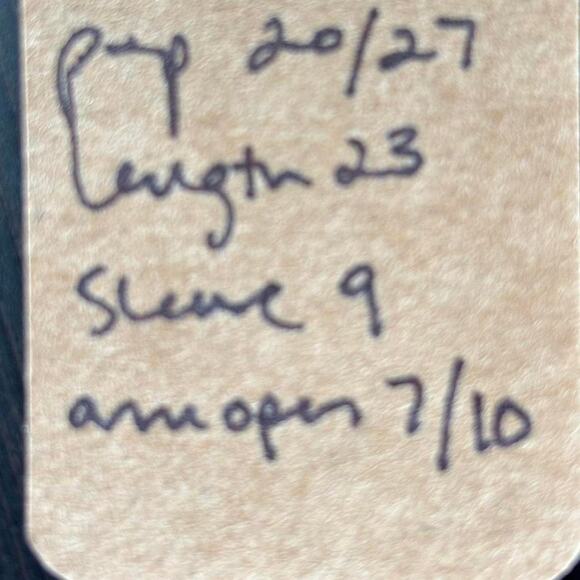 pup 20/27
length 23
Sleeve 9
arm open 7/10